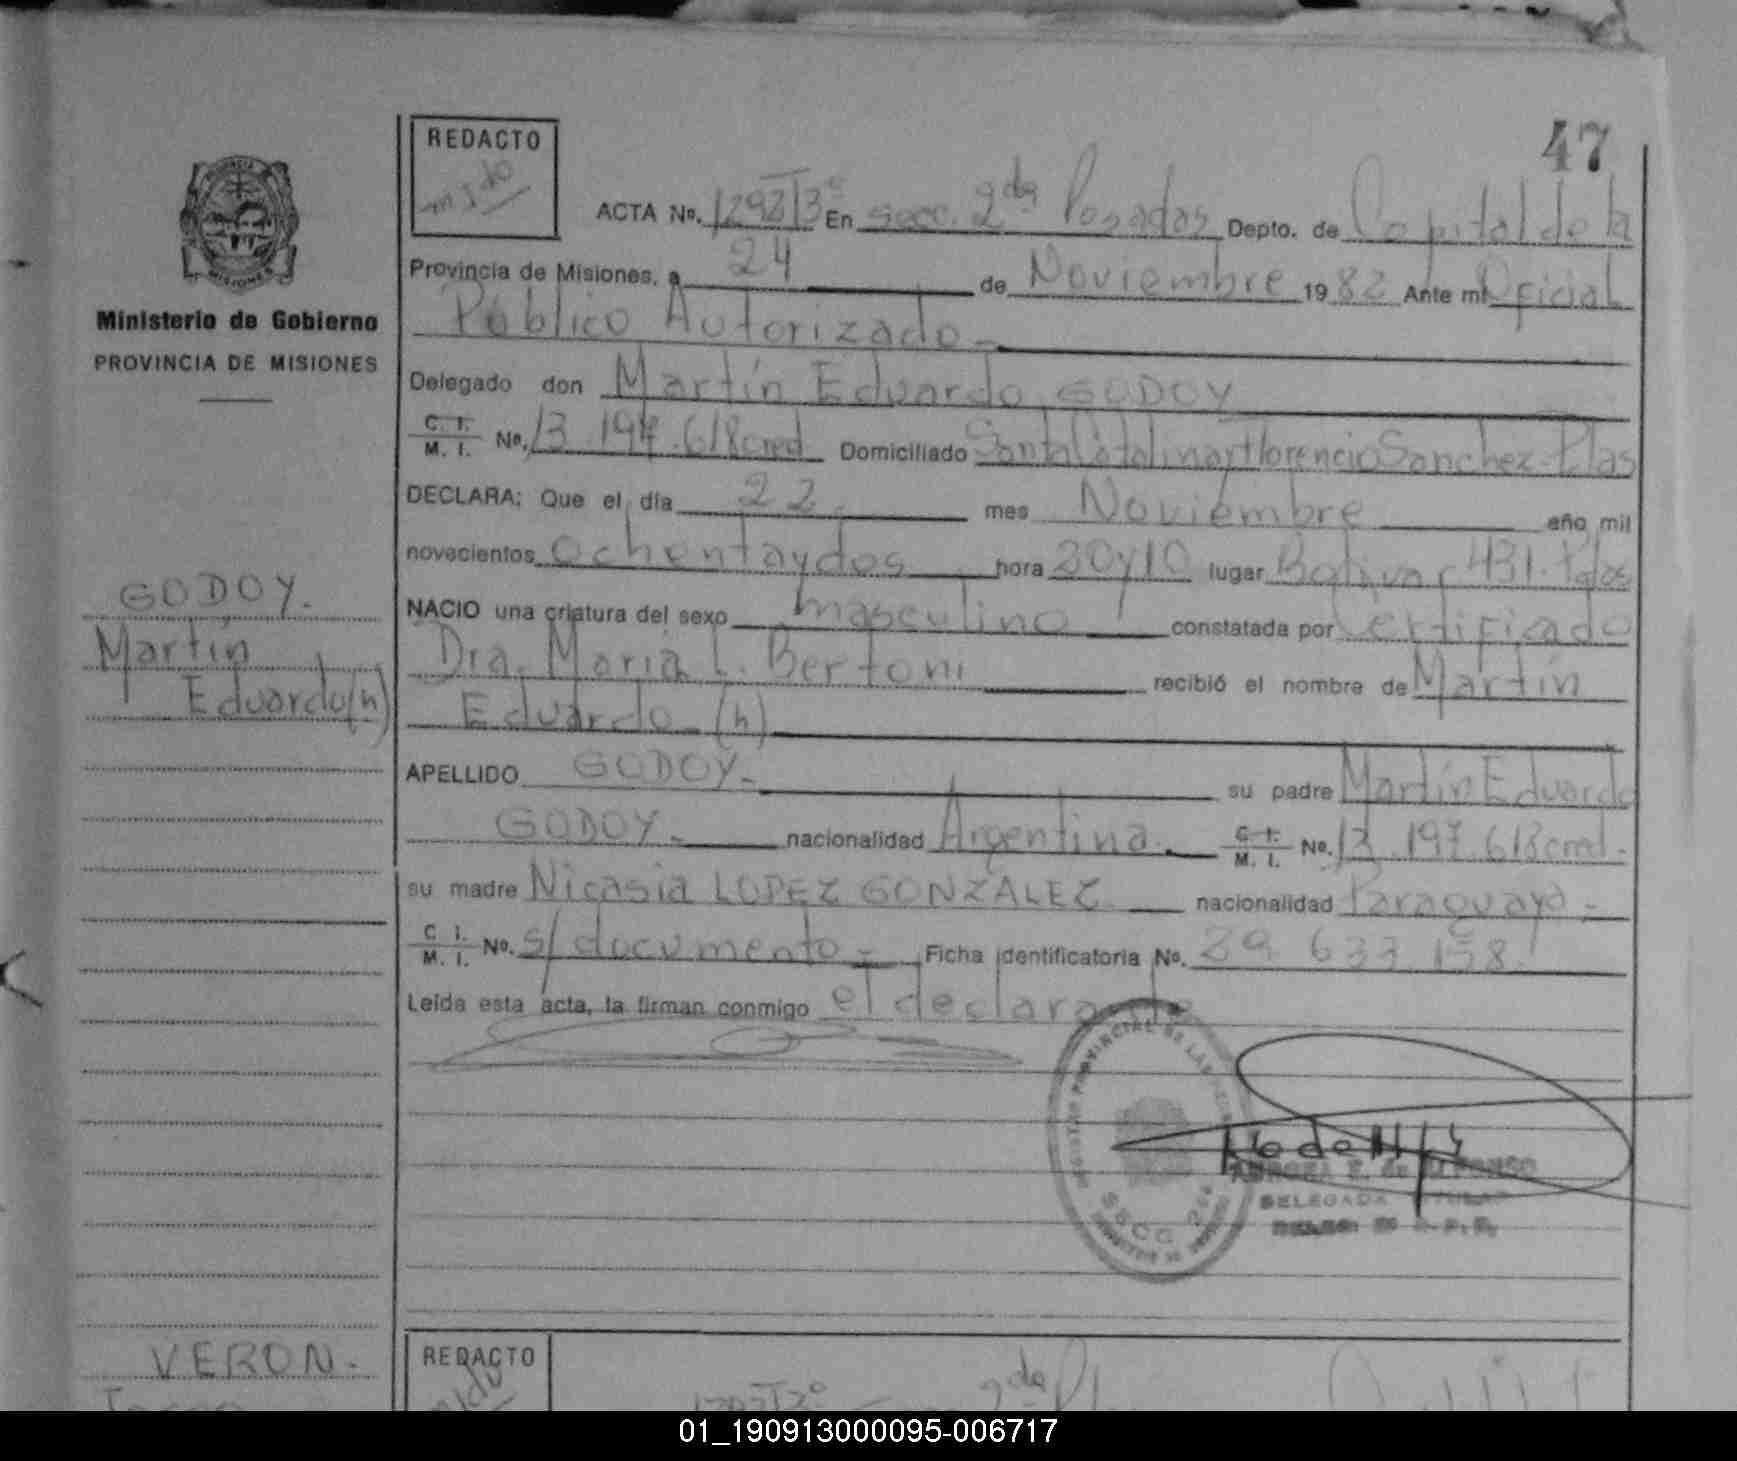 47
REDACTO
ACTA Nº. 1292T3º En secc. 2da Posadas Depto. de Capital de la
Provincia de Misiones, a 24 de Noviembre 1982 Ante mi Oficial
Público Autorizado -
Delegado don Martín Eduardo GODOY
C. I. M. I. Nº. 13.197.618 cmd Domiciliado Santa Catalina y Florencio Sanchez - Pdas
DECLARA: Que el día 22 mes Noviembre año mil
novecientos ochentaydos hora 20y10 lugar Bolivar 431. Pdas
NACIO una criatura del sexo masculino constatada por Certificado
Dra. María L. Bertoni recibió el nombre de Martín
Eduardo - (h)
APELLIDO GODOY - su padre Martín Eduardo
GODOY - nacionalidad Argentina. C. I. M. I. Nº. 13.197.618 cmd -
su madre Nicasia LOPEZ GONZALEZ nacionalidad Paraguaya -
C. I. M. I. Nº. s/ documento - Ficha identificatoria Nº. 29 633 158
Leída esta acta, la firman conmigo el declarante
MISIONES
Ministerio de Gobierno
PROVINCIA DE MISIONES
GODOY.
Martín
Eduardo(h)
DELEGADA TITULAR
VERON -
REDACTO
2da
01_190913000095-006717